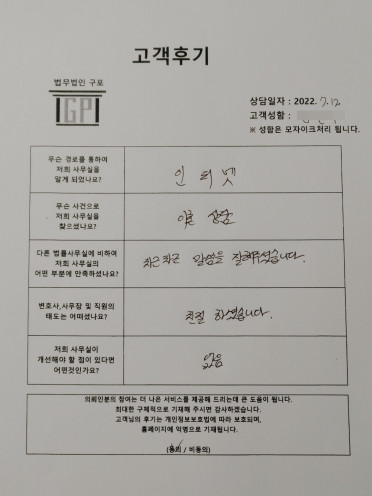 고객후기
법무법인 구포
GP
상담일자 : 2022. 7.12
고객성함 :
※ 성함은 모자이크처리 됩니다.
무슨 경로를 통하여
저희 사무실을
알게 되었나요?
인터넷
무슨 사건으로
저희 사무실을
찾으셨나요?
이혼 상담
다른 법률사무실에 비하여
저희 사무실의
어떤 부분에 만족하셨나요?
차근차근 말씀을 잘해주셨습니다.
변호사,사무장 및 직원의
태도는 어떠셨나요?
친절 하셨습니다.
저희 사무실이
개선해야 할 점이 있다면
어떤것인가요?
없음
의뢰인분의 참여는 더 나은 서비스를 제공해 드리는데 큰 도움이 됩니다.
최대한 구체적으로 기재해 주시면 감사하겠습니다.
고객님의 후기는 개인정보보호법에 따라 보호되며,
홈페이지에 익명으로 기재됩니다.
(동의 / 비동의)